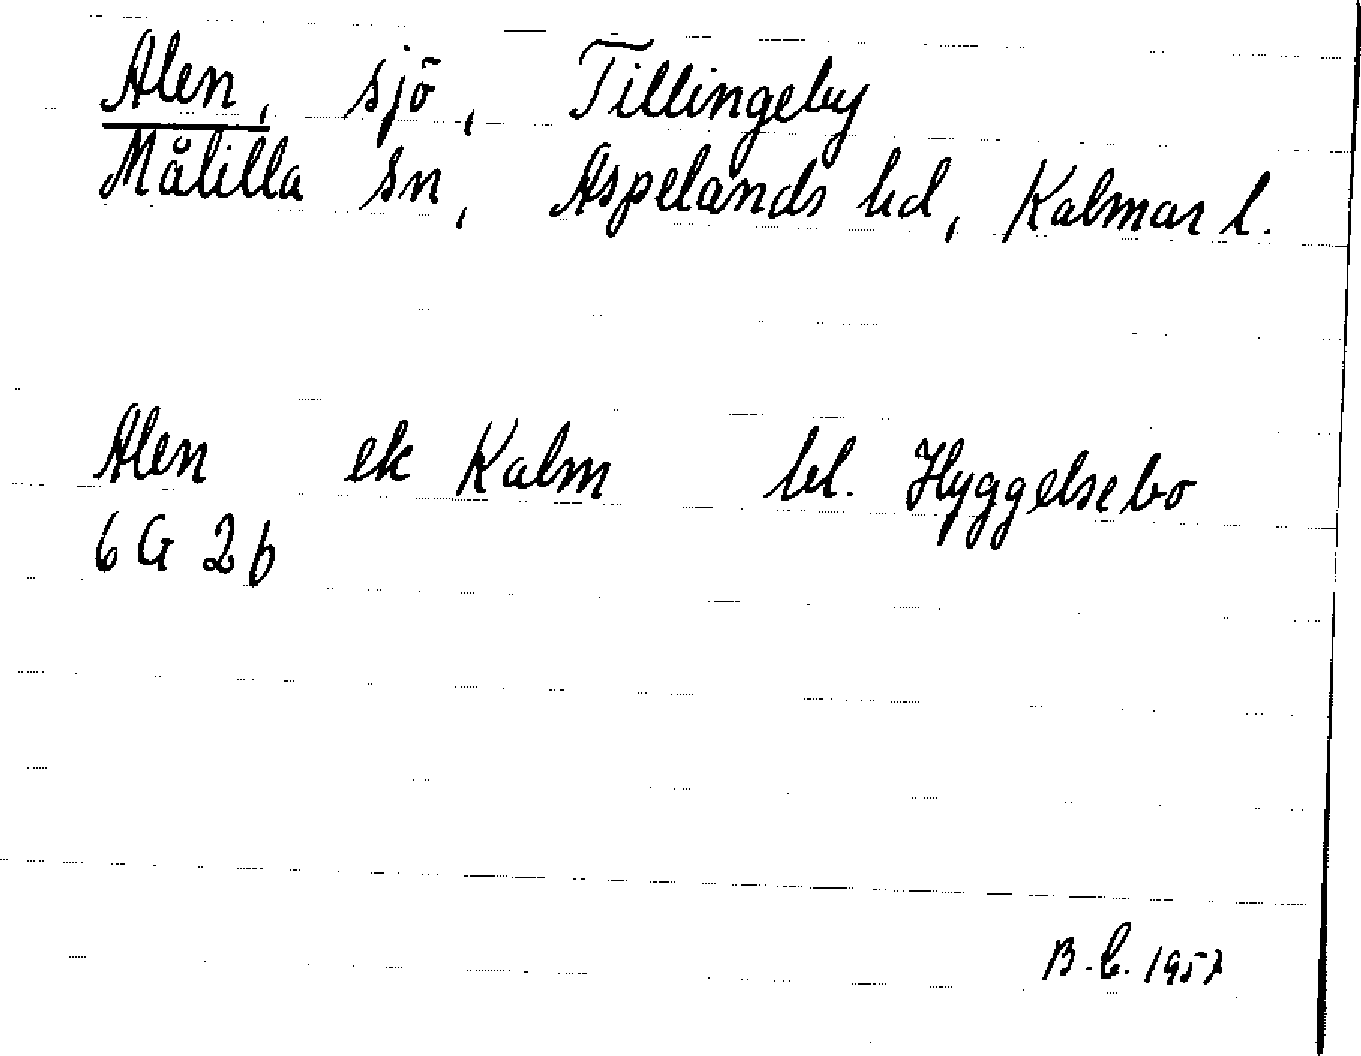 Alen, sjö, Tillingeby
Målilla sn, Aspelands hd, Kalmar l.
Alen ek Kalm bl. Hyggelsebo
6 G 2 b
B. C. 1957